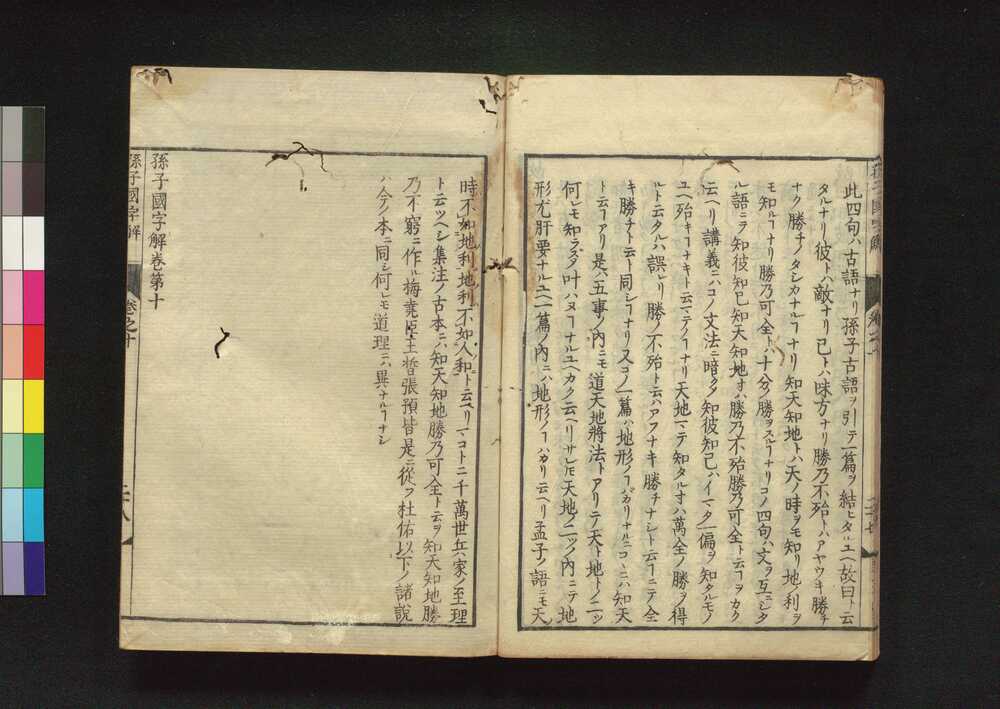 此四句ハ古語ナリ孫子古語ヲ引テ一篇ヲ結ヒタルユヘ故曰ト云
タルナリ彼トハ敵ナリ己トハ味方ナリ勝乃不殆トハアヤウキ勝チ
ナク勝チノタシカナルヿナリ知天知地トハ天ノ時ヲモ知リ地利ヲ
モ知ルヿナリ勝乃可全トハ十分ノ勝ヲスルヿナリコノ四句ハ文ヲ互ニシタ
ル語ニヲ知彼知己知天知地オハ勝乃不殆勝乃可全ト云フヲカク
云ヘリ講義ニハコノ文法ニ暗クメ知彼知己ハイマタ一偏ヲ知タルモノ
ユヘ殆キヿナキト云マテノヿナリ天地マテ知タルオハ萬全ノ勝ヲ得
ルト云タルハ誤レリ勝ノ不殆ト云ハアフナキ勝チナシト云ヿニテ全
キ勝チト云ト同シヿナリ又コノ一篇ハ地形ノヿバカリナルニコヽニハ知天
ト云フアリ是ハ五事ノ内ニモ道天地將法トアリテ天ト地トノ二ツ
何レモ知ラズメ叶ハヌヿナルユヘカク云ヘリサレ𪜈天地ノ二ツノ内ニテ地
形尤肝要ナルユヘ一篇ノ内ニハ地形ノヿハカリ云ヘリ孟子ノ語ニモ天
時不如地利地利不如人和ト云ヘリマコトニ千萬世兵家ノ至理
ト云ツヘシ集注ノ古本ニハ知天知地勝乃可全ト云ヲ知天知地勝
乃不窮ニ作ル梅堯臣王晳張預皆是ニ從フ杜佑以下ノ諸説
ハ今ノ本ニ同シ何レモ道理ニハ異ナルヿナシ
孫子國字解卷第十
孫子國字解
卷之十
二十八